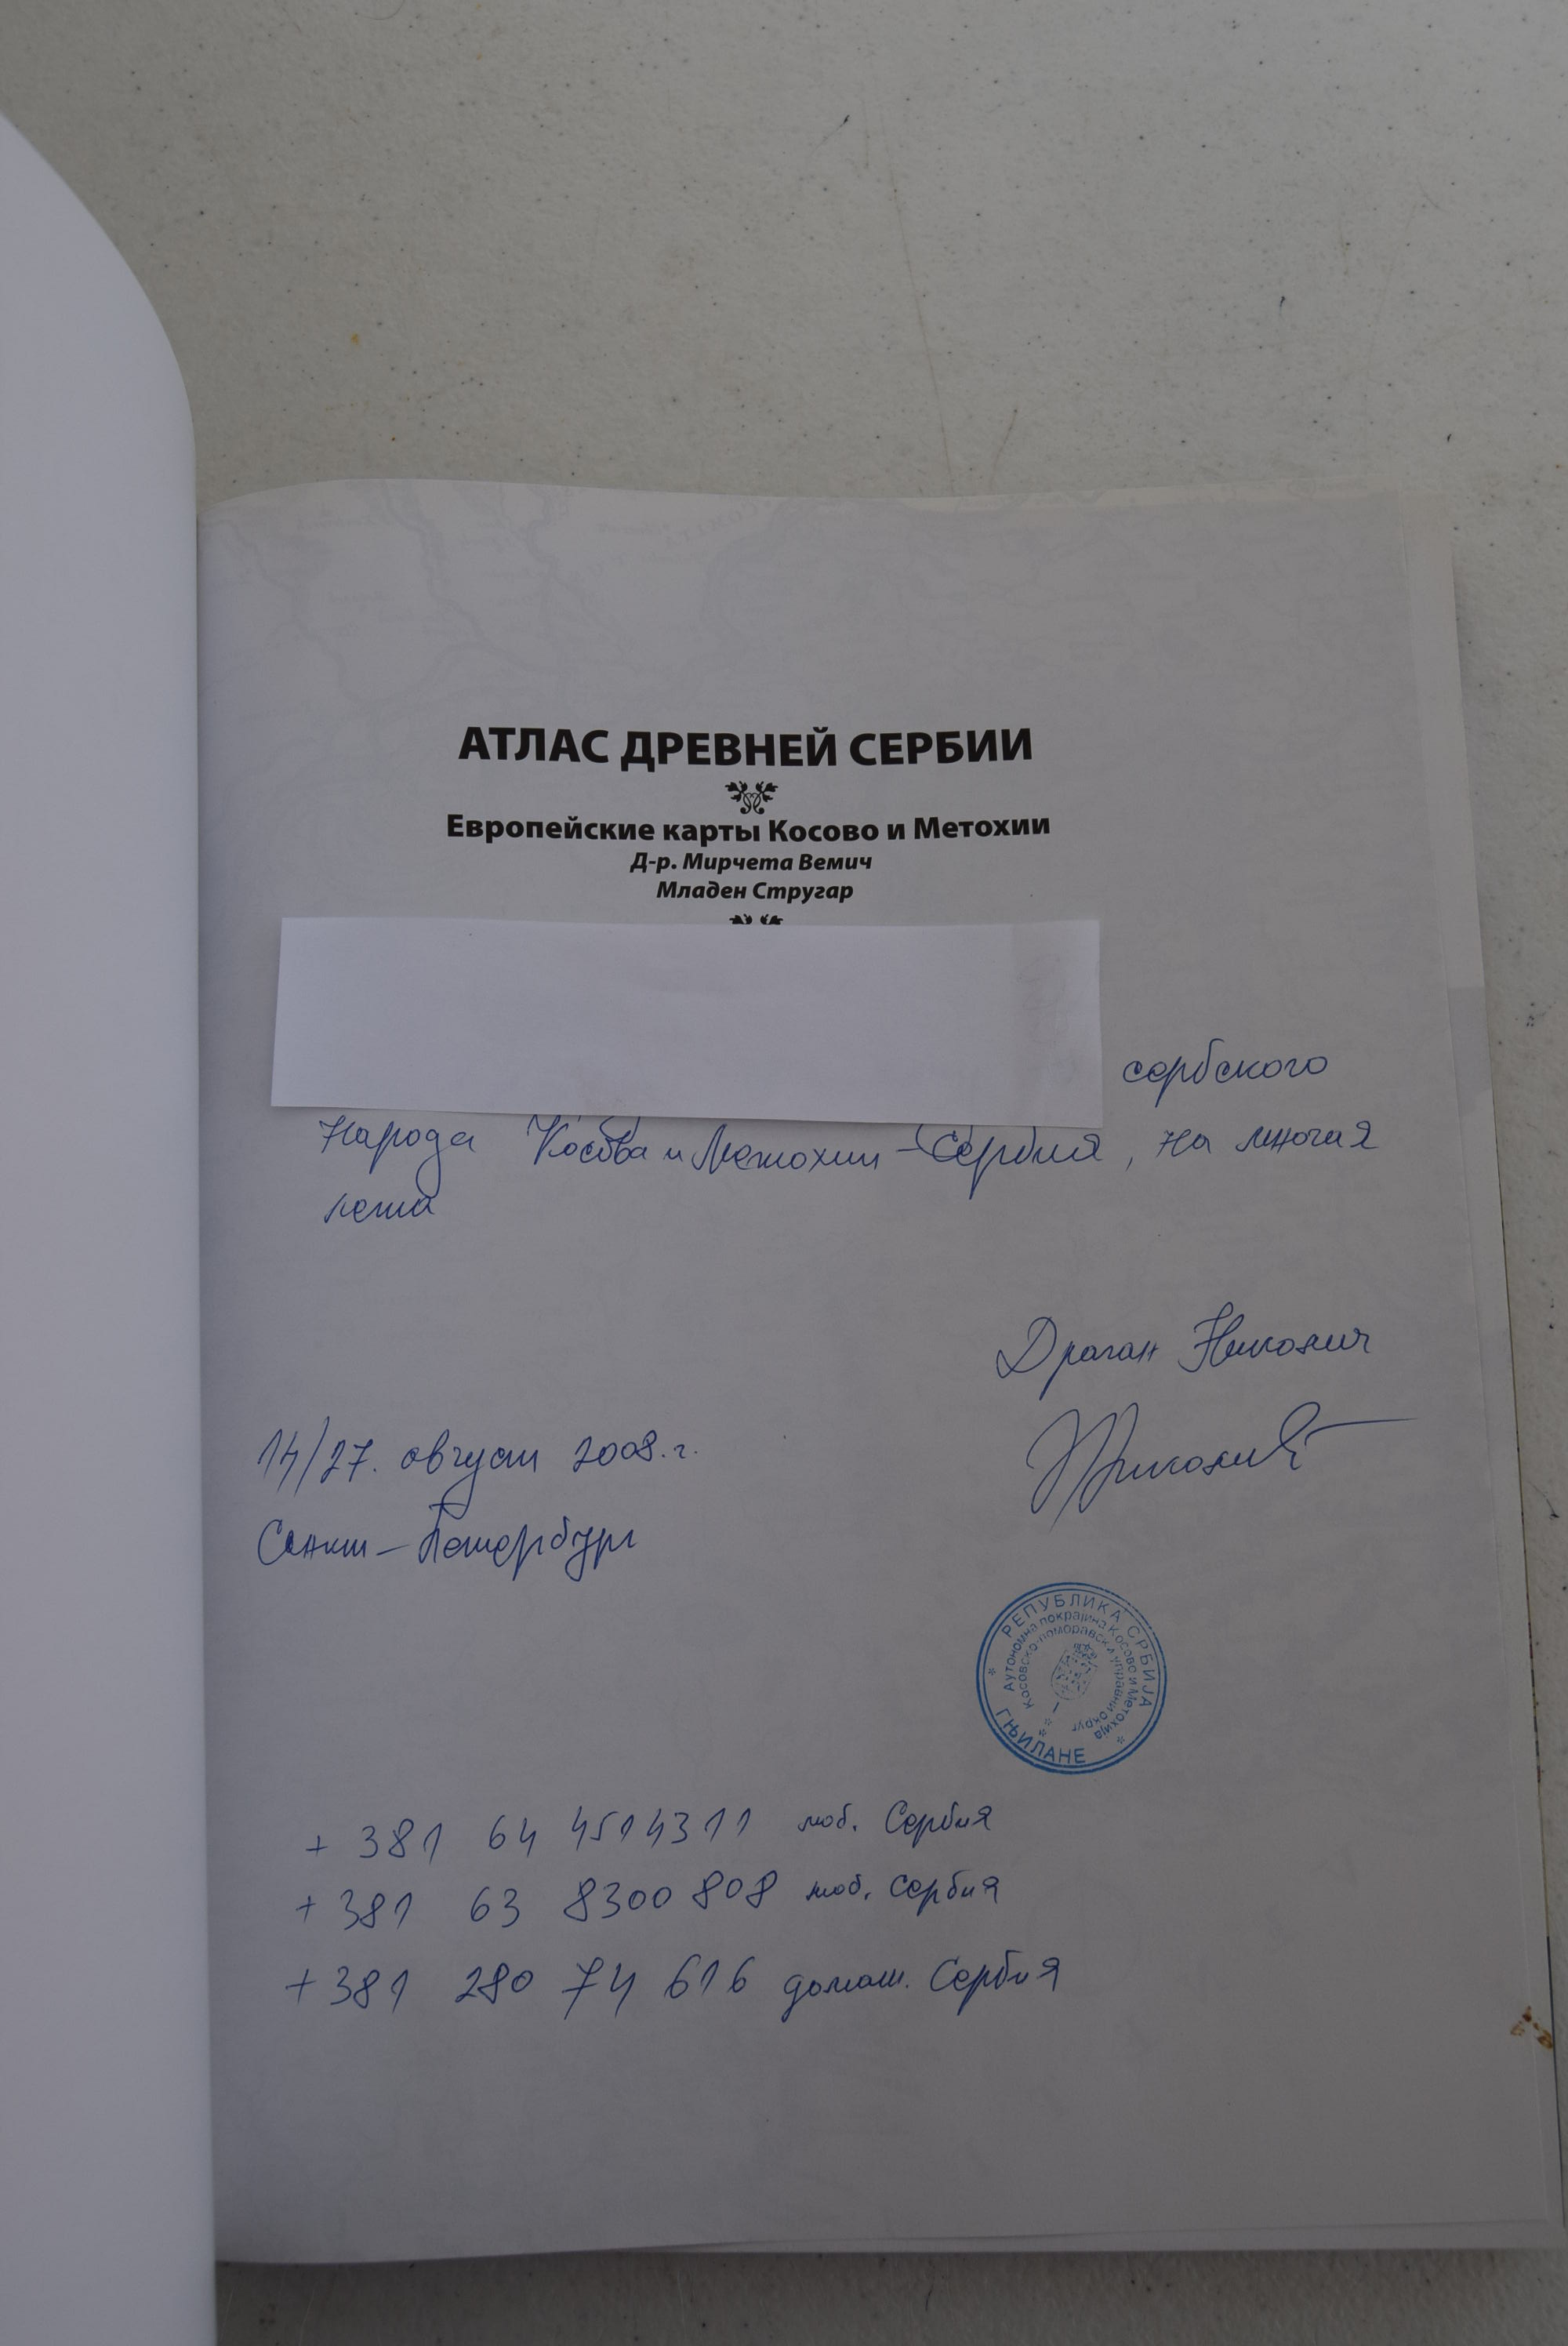 АТЛАС ДРЕВНЕЙ СЕРБИИ
Европейские карты Косово и Метохии
Д-р. Мирчета Вемич
Младен Стругар
сербского
народа Косова и Метохии - Сербия, на многая
лета
Драган Николич
Николић
14/27. август 2008.г.
Санкт-Петербург
РЕПУБЛИКА СРБИЈА
Аутономна покрајина Косово и Метохија
Косовско-поморавски управни округ
ГЊИЛАНЕ
+ 381 64 4514311 моб. Сербия
+ 381 63 8300 808 моб. Сербия
+ 381 280 74 616 домаш. Сербия